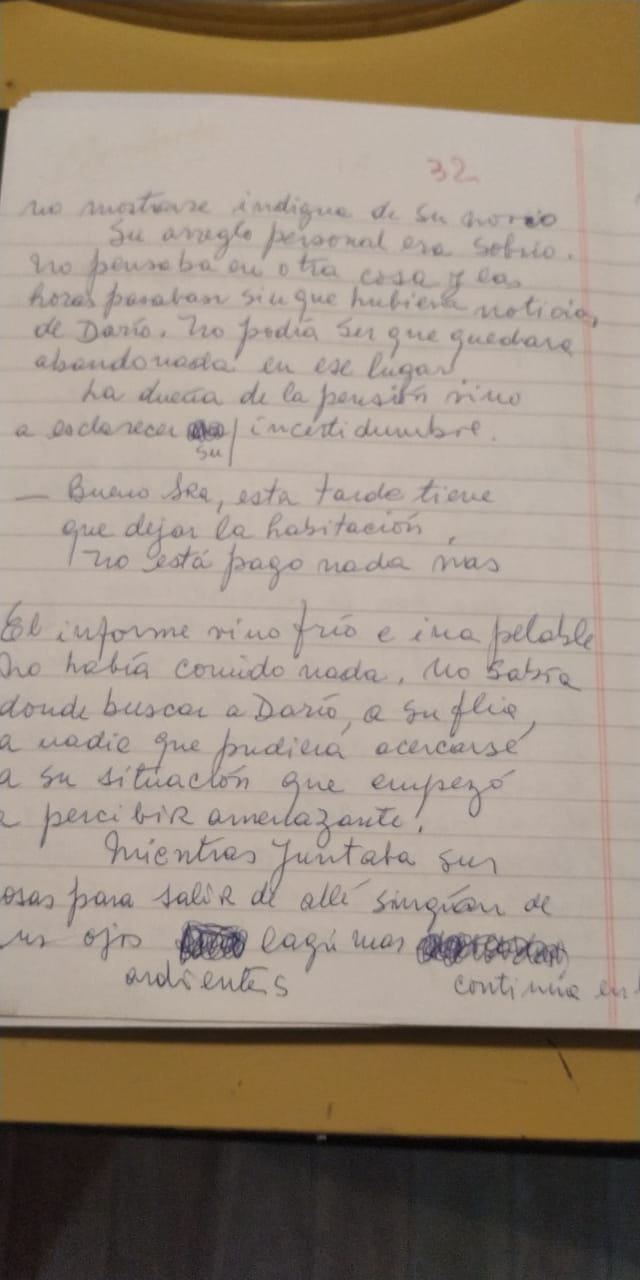 32
no mostrarse indigna de su novio
Su arreglo personal era sobrio.
No pensaba en otra cosa y las
horas pasaban sin que hubiera noticias
de Darío. No podía ser que quedara
abandonada en ese lugar.
La dueña de la pensión vino
a esclarecer su incertidumbre.
— Bueno Sra, esta tarde tiene
que dejar la habitación,
no está pago nada mas
El informe vino frío e inapelable
No había comido nada. No sabía
donde buscar a Darío, a su flia,
a nadie que pudiera acercarse
a su situación que empezó
a percibir amenazante.
Mientras juntaba sus
osas para salir de allí surgían de
us ojos lagrimas
ardientes
continúa en